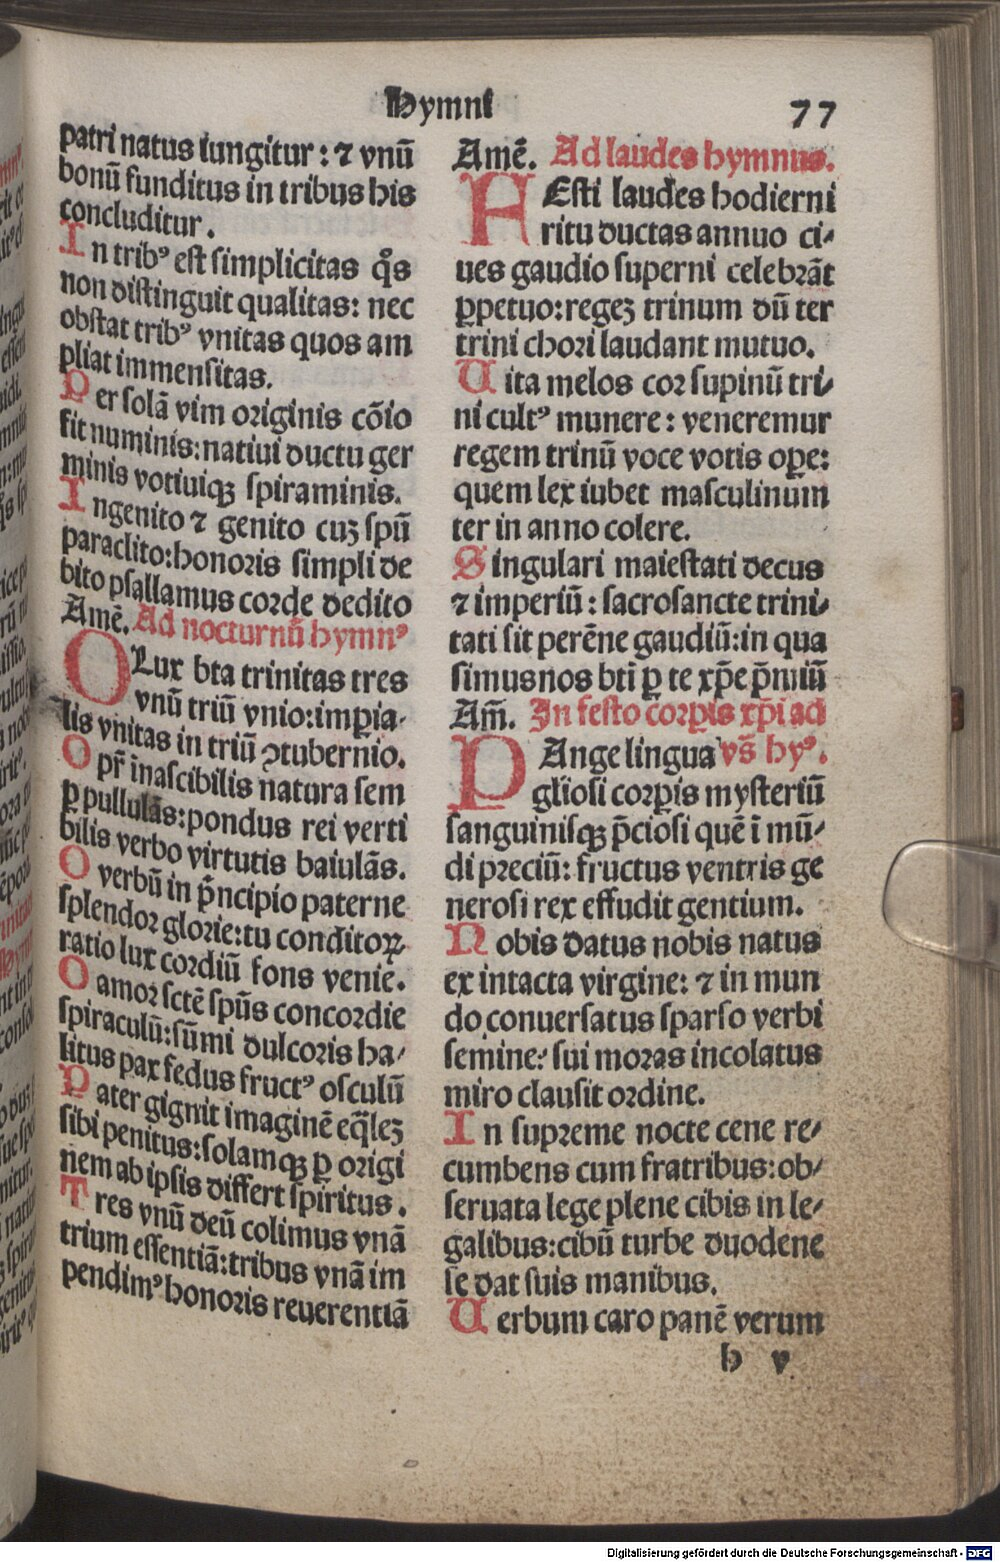 Hymni
77
patri natus iungitur: ⁊ vnū
bonū funditus in tribus his
concluditur.
In tribꝰ est simplicitas q̄s
non distinguit qualitas: nec
obstat tribꝰ vnitas quos am
pliat immensitas.
Per solā vim originis cōio
fit numinis: natiui ductu ger
minis votiuiqꝫ spiraminis.
Ingenito ⁊ genito cuꝫ spū
paraclito: honoris simpli de
bito psallamus corde dedito
Amē. Ad nocturnū hymnꝰ
O Lux bta trinitas tres
vnū triū vnio: imꝑia-
lis vnitas in triū ꝯtubernio.
O pr̄ inascibilis natura sem
ꝑ pullulās: pondus rei verti
bilis verbo virtutis baiulās.
O verbū in pͥncipio paterne
splendor glorie: tu conditoꝝ
ratio lux cordiū fons venie.
O amor sctē spūs concordie
spiraculū: sūmi dulcoris ha-
litus pax fedus fructꝰ osculū
Pater gignit imaginē eq̄leꝫ
sibi penitus: solamqꝫ ꝑ origi
nem ab ipsis differt spiritus.
Tres vnū deū colimus vnā
trium essentiā: tribus vnā im
pendimꝰ honoris reuerentiā
Amē. Ad laudes hymnus.
FEsti laudes hodierni
ritu ductas annuo ci-
ues gaudio superni celebrāt
ꝑpetuo: regeꝫ trinum dū ter
trini chori laudant mutuo.
Uita melos cor supinū tri-
ni cultꝰ munere: veneremur
regem trinū voce votis oꝑe:
quem lex iubet masculinum
ter in anno colere.
Singulari maiestati decus
⁊ imperiū: sacrosancte trini-
tati sit perēne gaudiū: in qua
simus nos bti ꝑ te xp̄e p̄miū
Am̄. In festo corꝑis xp̄i ad
PAnge lingua vs̄ hyꝰ.
gliosi corꝑis mysteriū
sanguinisqꝫ p̄ciosi quē ī mū-
di preciū: fructus ventris ge
nerosi rex effudit gentium.
Nobis datus nobis natus
ex intacta virgine: ⁊ in mun
do conuersatus sparso verbi
semine: sui moras incolatus
miro clausit ordine.
In supreme nocte cene re-
cumbens cum fratribus: ob-
seruata lege plene cibis in le-
galibus: cibū turbe duodene
se dat suis manibus.
Uerbum caro panē verum
h v
Digitalisierung gefördert durch die Deutsche Forschungsgemeinschaft - DFG